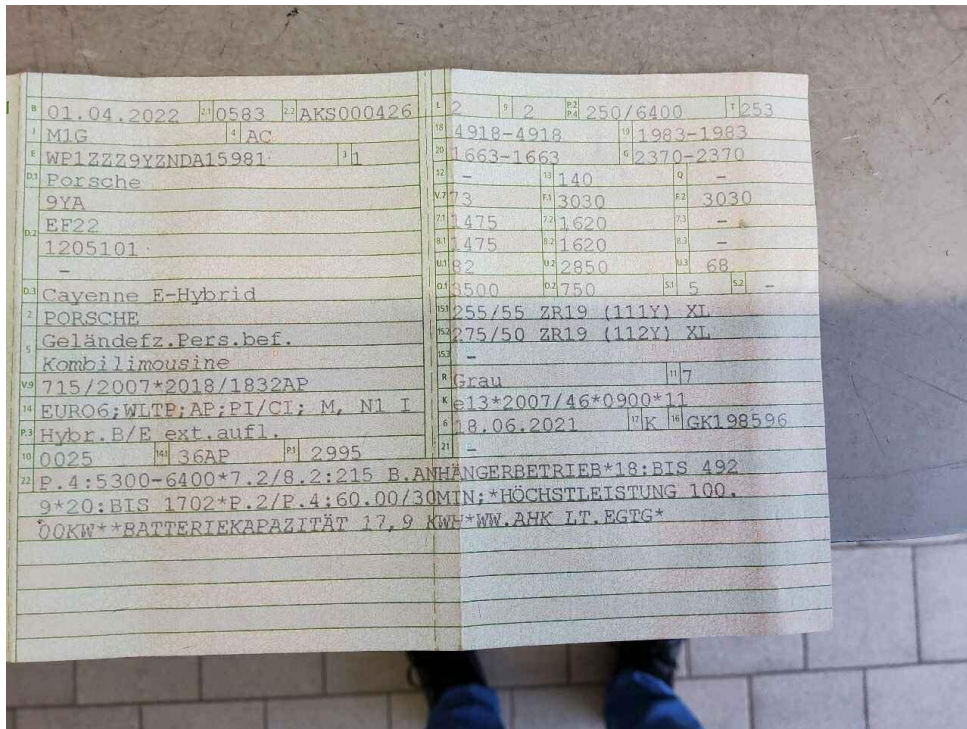 B 01.04.2022 2.1 0583 2.2 AKS000426
J M1G 4 AC
E WP1ZZZ9YZNDA15981 3 1
D.1 Porsche
9YA
D.2 EF22
1205101
–
D.3 Cayenne E-Hybrid
2 PORSCHE
5 Geländefz.Pers.bef.
Kombilimousine
V.9 715/2007*2018/1832AP
14 EURO6;WLTP;AP;PI/CI; M, N1 I
P.3 Hybr.B/E ext.aufl.
10 0025 14.1 36AP P.1 2995
L 2 9 2 P.2 P.4 250/6400 T 253
18 4918-4918 19 1983-1983
20 1663-1663 G 2370-2370
12 – 13 140 Q –
V.7 73 F.1 3030 F.2 3030
7.1 1475 7.2 1620 7.3 –
8.1 1475 8.2 1620 8.3 –
U.1 82 U.2 2850 U.3 68
O.1 3500 O.2 750 S.1 5 S.2 –
15.1 255/55 ZR19 (111Y) XL
15.2 275/50 ZR19 (112Y) XL
15.3 –
R Grau 11 7
K e13*2007/46*0900*11
6 18.06.2021 17 K 16 GK198596
21 –
22 P.4:5300-6400*7.2/8.2:215 B.ANHÄNGERBETRIEB*18:BIS 492
9*20:BIS 1702*P.2/P.4:60.00/30MIN;*HÖCHSTLEISTUNG 100.
00KW**BATTERIEKAPAZITÄT 17,9 KWH*WW.AHK LT.EGTG*